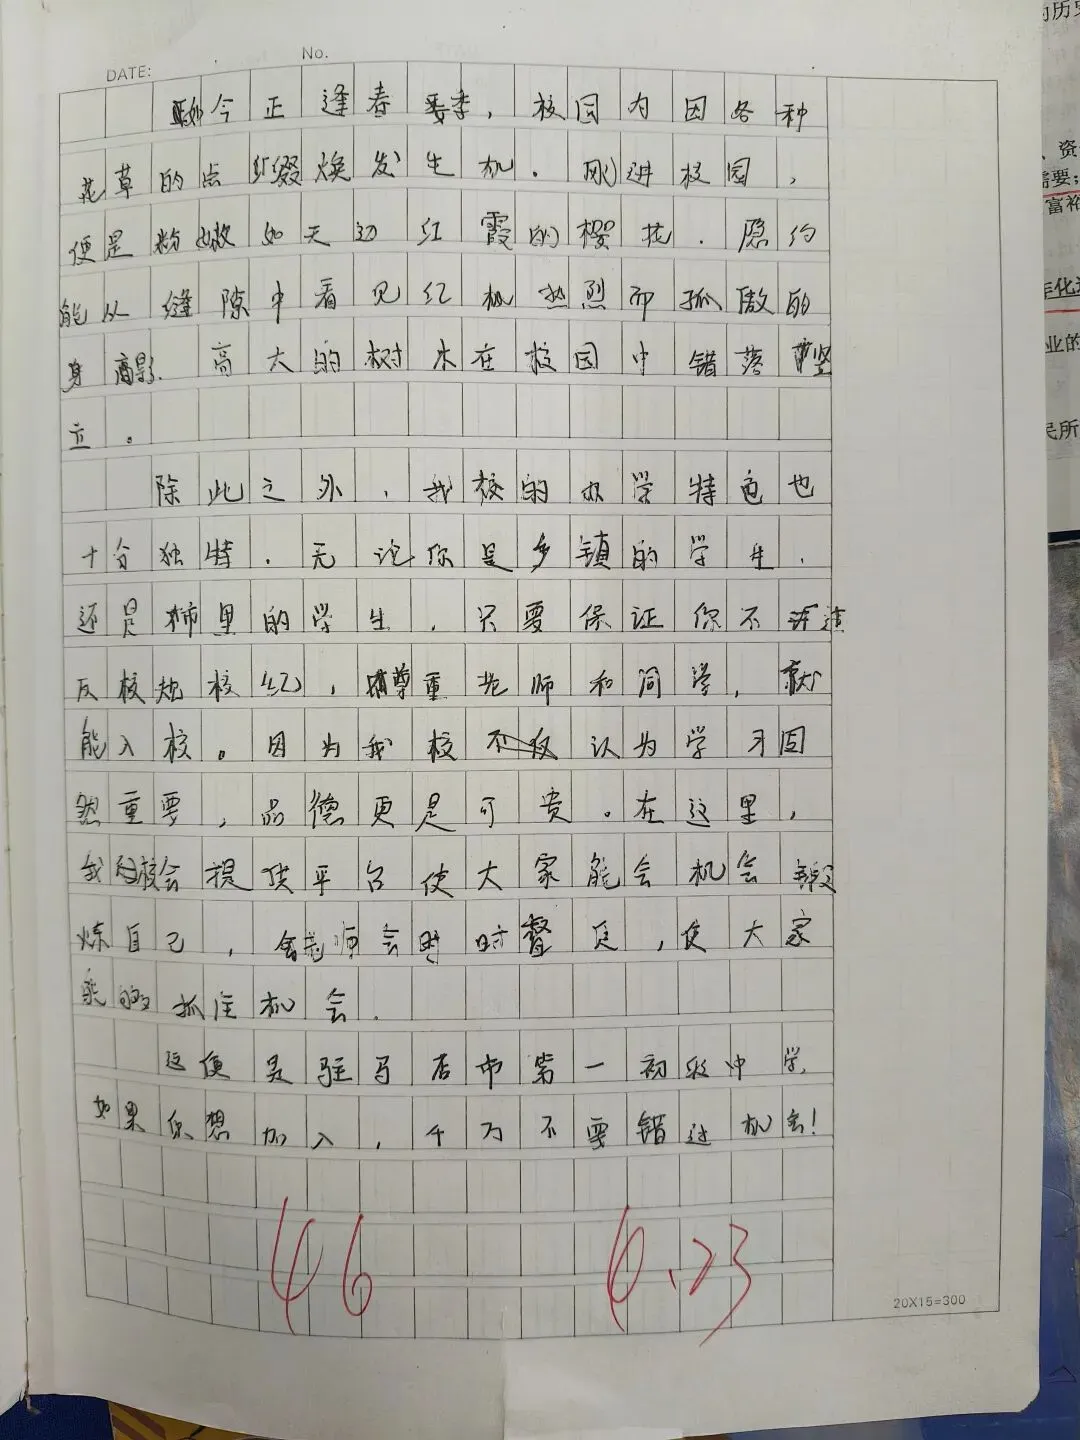 DATE: No.
如今正逢春季，校园内因各种
花草的点缀焕发生机。刚进校园，
便是粉嫩如天边红霞的樱花．隐约
能从缝隙中看见红枫热烈而孤傲的
身影．高大的树木在校园中错落竖
立。
除此之外，我校的办学特色也
十分独特．无论你是乡镇的学生．
还是市里的学生，只要保证你不违
反校规校纪，尊重老师和同学，就
能入校。因为我校认为学习固
然重要，品德更是可贵。在这里，
我校会提供平台使大家能会机会锻
炼自己，老师会时时督促，使大家
能够抓住机会．
这便是驻马店市第一初级中学．
如果你想加入，千万不要错过机会！
46 6.23
20X15=300
的历史
、资
需要；
富裕
业的
民所